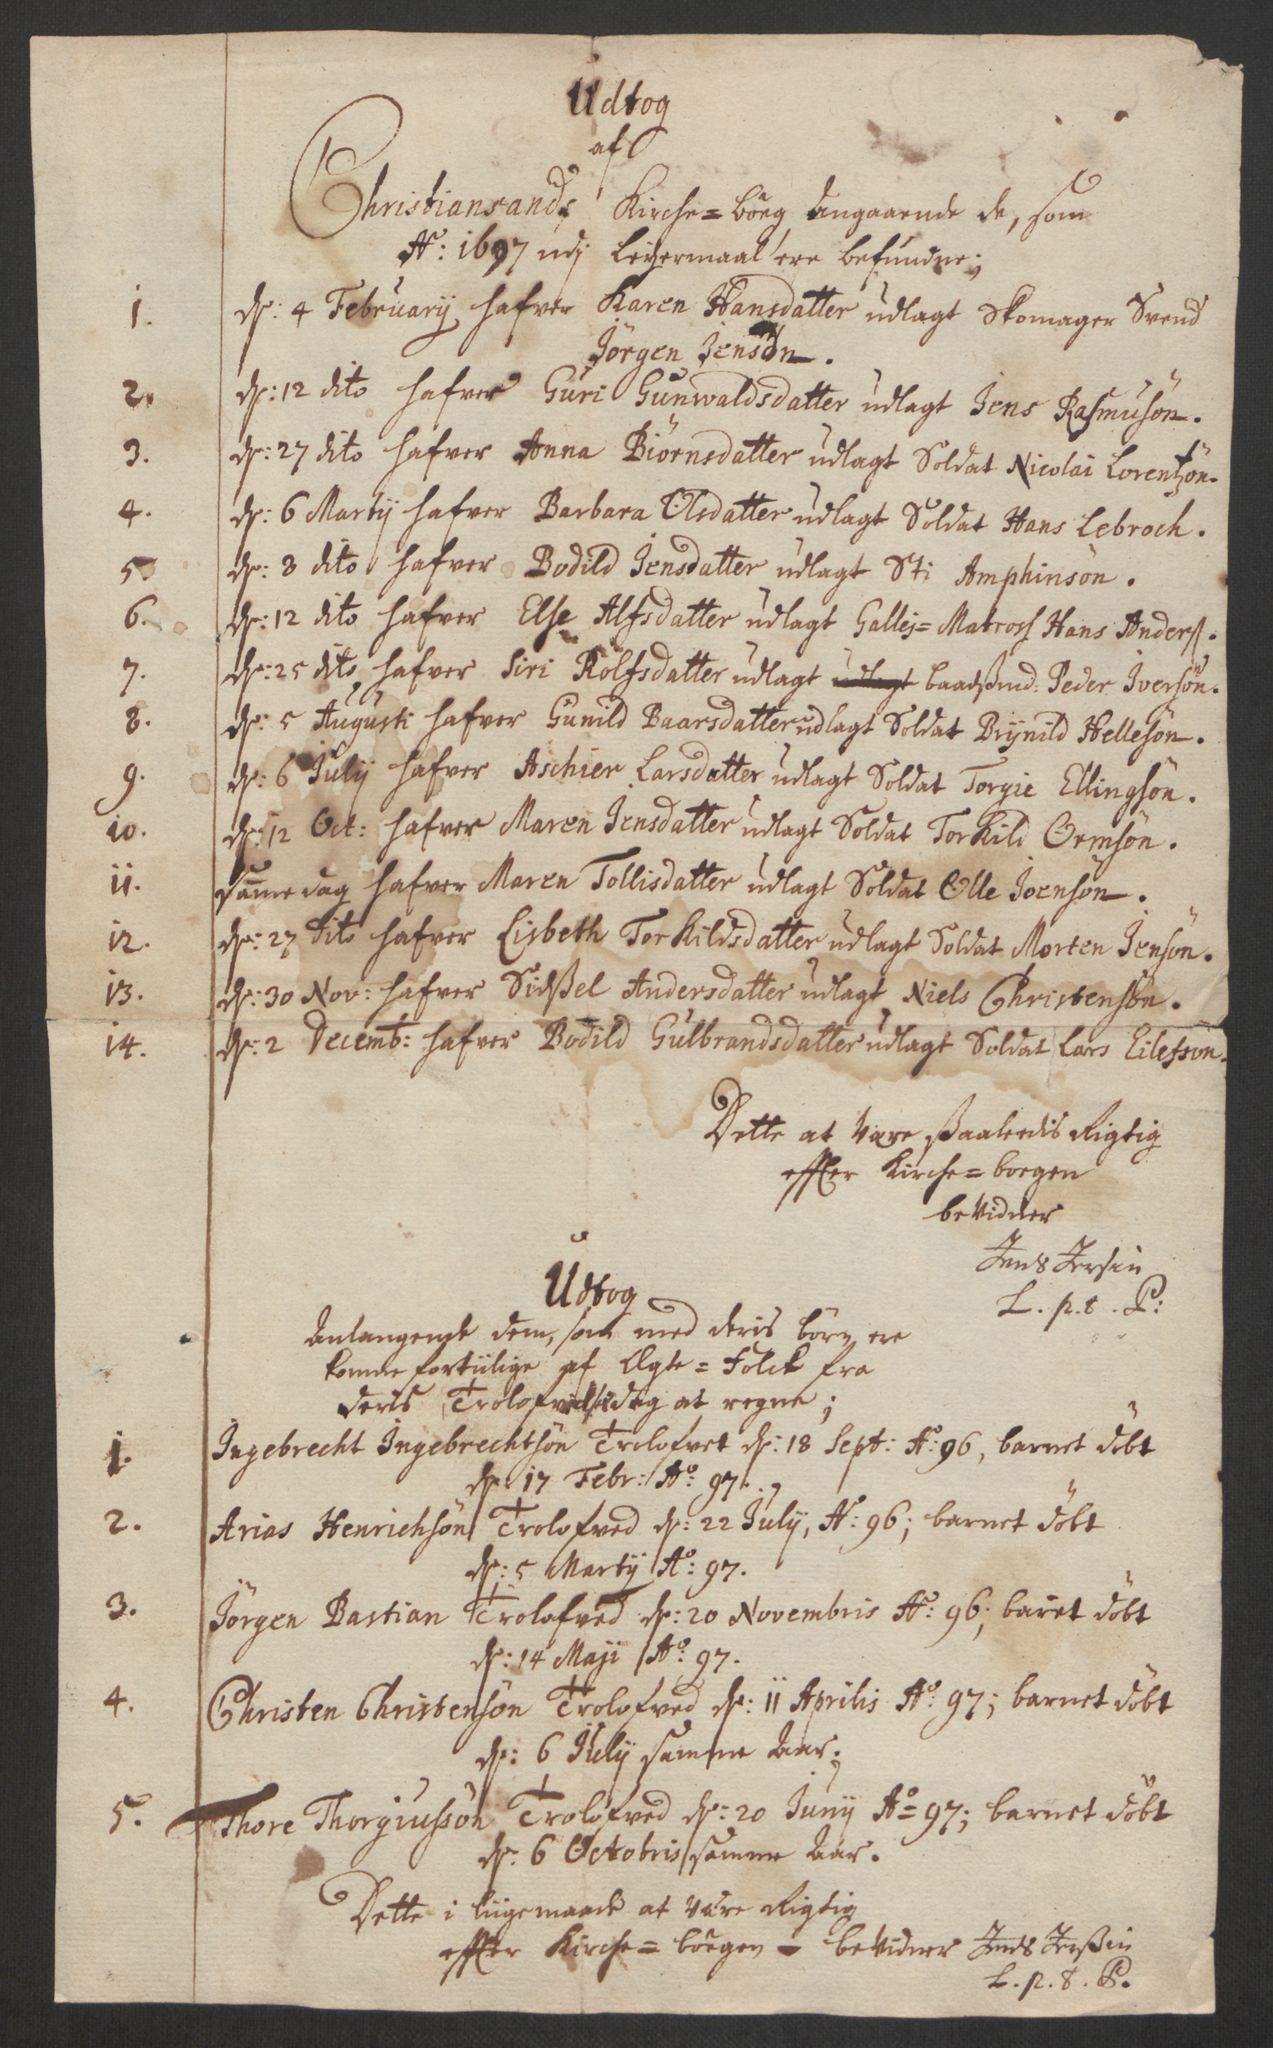 Udtog
af
Christiansands Kirche=boeg angaaende de, som
Aº: 1697 udj Leyermaal ere befundne;
1. dn: 4 February hafver Karen Hansdatter udlagt Skomager Svend
Jörgen Jensön.
2. dn: 12 dito hafver Guri Gunwaldsdatter udlagt Jens Rasmusön.
3. dn: 27 dito hafver Anna Biörnsdatter udlagt Soldat Nicolai Lorentzön.
4. dn: 6 Martij hafver Barbara Olsdatter udlagt Soldat Hans Lebroch.
5. dn: 8 dito hafver Bodild Jensdatter udlagt Sti Amphinsön.
6. dn: 12 dito hafver Else Alfsdatter udlagt Gallej=Matross Hans Anderß.
7. dn: 25 dito hafver Siri Rolfsdatter udlagt udlagt baadßmd. Peder Iversön.
8. dn: 5 Augusti hafver Gunild Baarsdatter udlagt Soldat Brynild Hellesön.
9. dn: 6 July hafver Aschier Larsdatter udlagt Soldat Torgie Ellingsön.
10. dn: 12 Oct: hafver Maren Jensdatter udlagt Soldat Torkild Ormsön.
11. samme dag hafver Maren Tollisdatter udlagt Soldat Olle Joensön.
12. dn: 27 dito hafver Lisbeth Torkildsdatter udlagt Soldat Morten Jensön.
13. dn: 30 Nov: hafver Sidßel Andersdatter udlagt Niels Christensön.
14. dn: 2 Decemb: hafver Bodild Gulbrandsdatter udlagt Soldat Lars Eilefsön.
Dette at være ßaaleedis Rigtig
effter Kirche=boegen
bevidner
Jens Jersin
L. p. s. P:
Udtog
Anlangende dem, som med deris börn ere
komne fortiilige af Ægte=Folck fra
deris Trolofvelsis dag at regne;
1. Ingebrecht Ingebrechtsön Trolofvet dn: 18 Sept: Aº: 96, barnet döbt
dn: 17 Febr: Aº: 97.
2. Arias Henrichsön Trolofved dn: 22 July, Aº: 96; barnet döbt
dn: 5 Martij Aº: 97.
3. Jörgen Bastian Trolofved dn: 20 Novembris Aº: 96; barnet döbt
dn: 14 Maji Aº: 97.
4. Christen Christensön Trolofved dn: 11 Aprilis Aº: 97; barnet döbt
dn: 6 July samme Aar;
5. Thore Thorgiussön Trolofved dn: 20 Juny Aº= 97; barnet döbt
dn: 6 Octobris samme Aar.
Dette i liigemaade at være Rigtig
effter Kirche=boegen - bevidner Jens Jerßin
L. p. s. P.